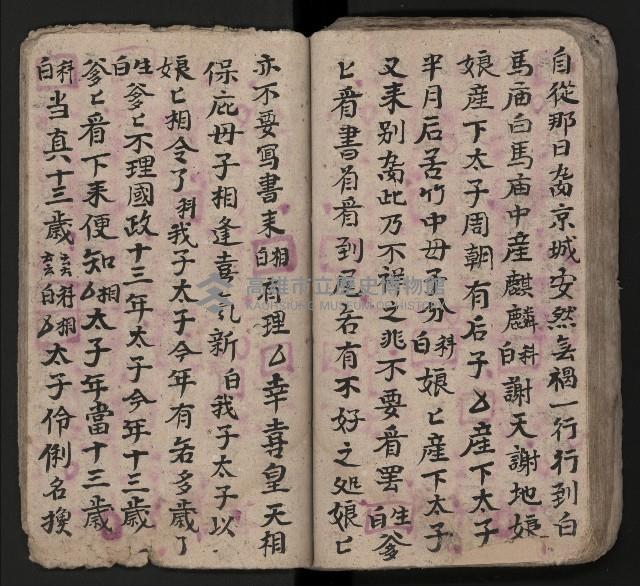 自從那日离京城安然無禍一行行到白
馬庙白馬庙中産麒麟科白謝天謝地娘
娘産下太子周朝有后子𠃊産下太子
半月后苦竹中母子分科白娘匕産下太子
又来别离此乃不祥之兆不要看罢生白爹
匕看書前看到若有不好之处娘匕
亦不要写書来相白有理𠃊幸喜皇天相
保庇母子相逢喜氣新白我子太子以
娘匕相令了科我子太子今年有多歲了
生白爹匕不理國政十三年太子今年十三歲
爹匕看下来便知相𠃊太子年當十三歲
科白当真十三歲科相白𠃊太子伶俐名揆
高雄市立歷史博物館
KAOHSIUNG MUSEUM OF HISTORY